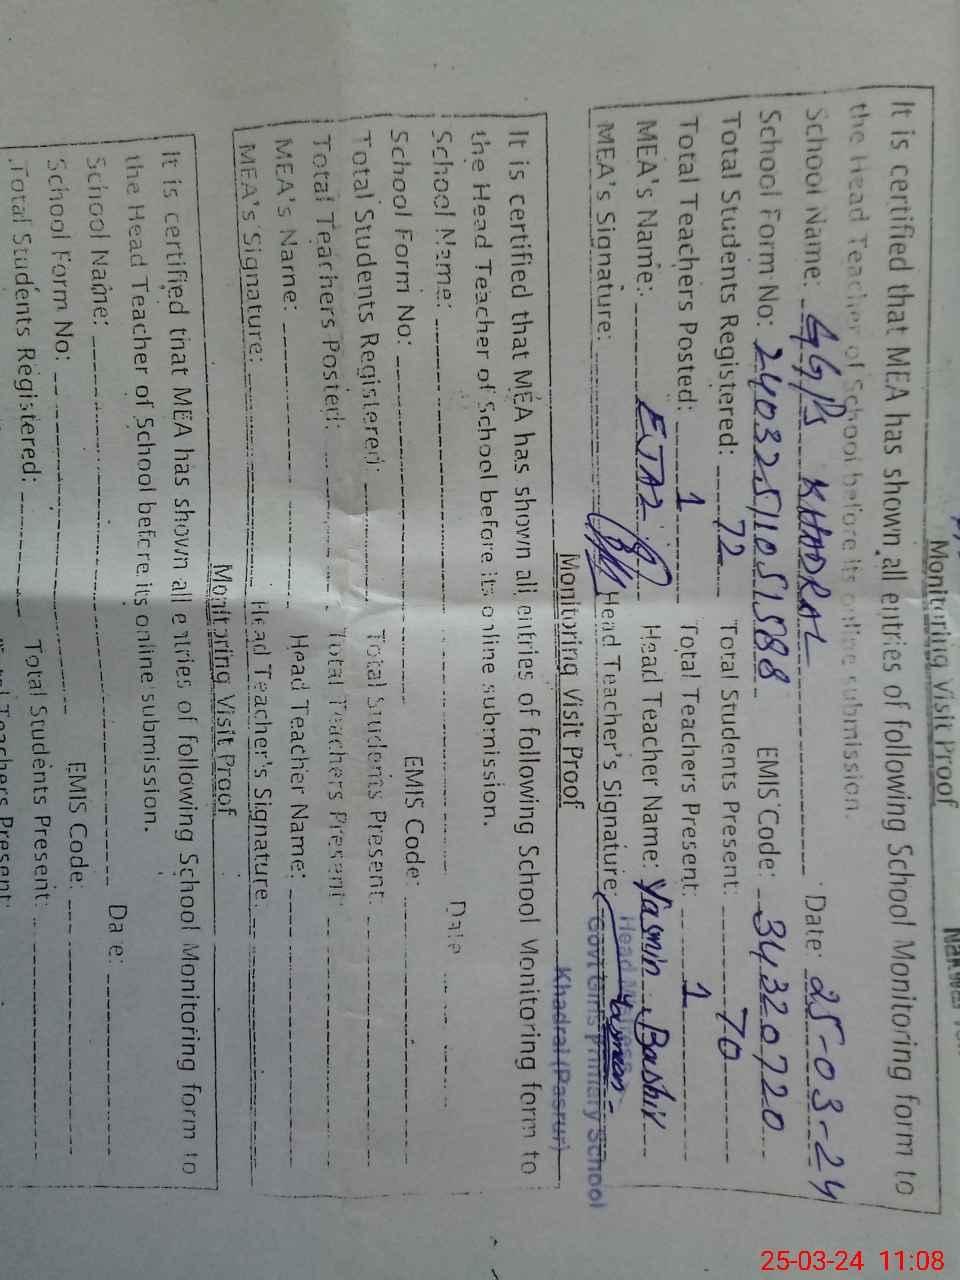 Monitoring Visit Proof
It is certified that MEA has shown all entries of following School Monitoring form to
the Head Teacher of School before its online submission.
School Name: GGPS KHADRAL Date: 25-03-24
School Form No: 24032511051588 EMIS Code: 34320720
Total Students Registered: 72 Total Students Present: 70
Total Teachers Posted: 1 Total Teachers Present: 1
MEA's Name: EJAZ Head Teacher Name: Yasmin Bashir
MEA's Signature: Head Teacher's Signature:
Govt Girls Primary School
Khadral (Pasrur)
Monitoring Visit Proof
It is certified that MEA has shown all entries of following School Monitoring form to
the Head Teacher of School before its online submission.
School Name: Date
School Form No: EMIS Code:
Total Students Registered: Total Students Present:
Total Teachers Posted: Total Teachers Present:
MEA's Name: Head Teacher Name:
MEA's Signature: Head Teacher's Signature:
Monitoring Visit Proof
It is certified that MEA has shown all entries of following School Monitoring form to
the Head Teacher of School before its online submission.
School Name: Date:
School Form No: EMIS Code:
Total Students Registered: Total Students Present:
Teachers Present:
25-03-24 11:08